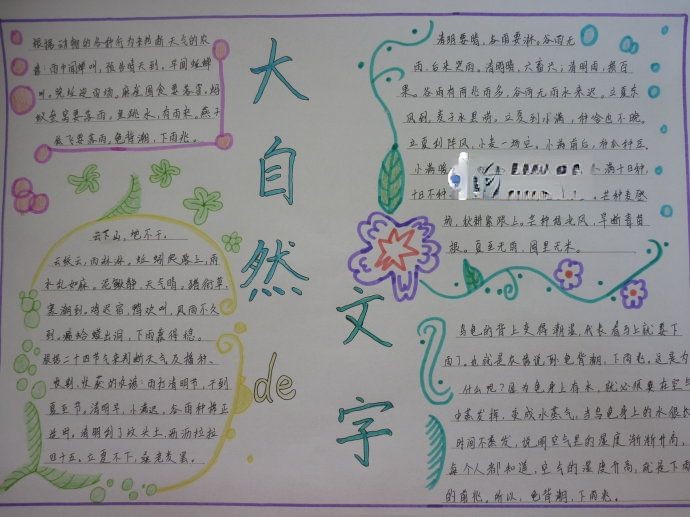 根据动物的各种行为来判断天气的农
谚：雨中闻蝉叫，预告晴天到。早闻蛙蝉
叫，晚必迎雷雨。麻雀囤食要落雪，蚂
蚁垒窝要落雨。鱼跳水，有雨来。燕子
低飞要落雨。龟背潮，下雨兆。
云下山，地不干。
云绞云，雨淋淋。蚯蚓爬路上，雨
水乱如麻。泥鳅静，天气晴。蜻蜓
到。鸡迟宿，鸭欢叫，风雨不久
到。癞蛤蟆出洞，下雨靠得稳。
根据二十四节气来判断天气及播种、
收割、收获的农谚：雨打清明节，干到
夏至节。清明早，小满迟，谷雨种棉正
适时。清明刮了坟头土，沥沥拉拉
四十五。立夏不下，桑老麦罢。
大
自
然
de
文
字
清明要晴，谷雨要淋。谷雨无
雨，后来哭雨。清明晴，六畜兴；清明雨，损百
果。谷雨有雨兆雨多，谷雨无雨水来迟。立夏东
风到，麦子水里涝。立夏到小满，种啥也不晚。
立夏到阵风，小麦一场空。小满前后，种瓜种豆。
小满
满十日种，
十日不种
芒种麦登
场，秋耕紧跟上。芒种刮北风，旱断青苗
根。夏至无雨，囤里无米。
乌龟的背上变得潮湿，代表着马上就要下
雨了。也就是农谚说到龟背潮，下雨兆。这是为
什么呢？因为龟身上有水，就必须要在空气
中蒸发掉，变成水蒸气，当乌龟身上的水很长
时间不蒸发，说明空气里的湿度渐渐升高，
每个人都知道，空气的湿度升高，就是下雨
的前兆。所以，龟背潮，下雨兆。